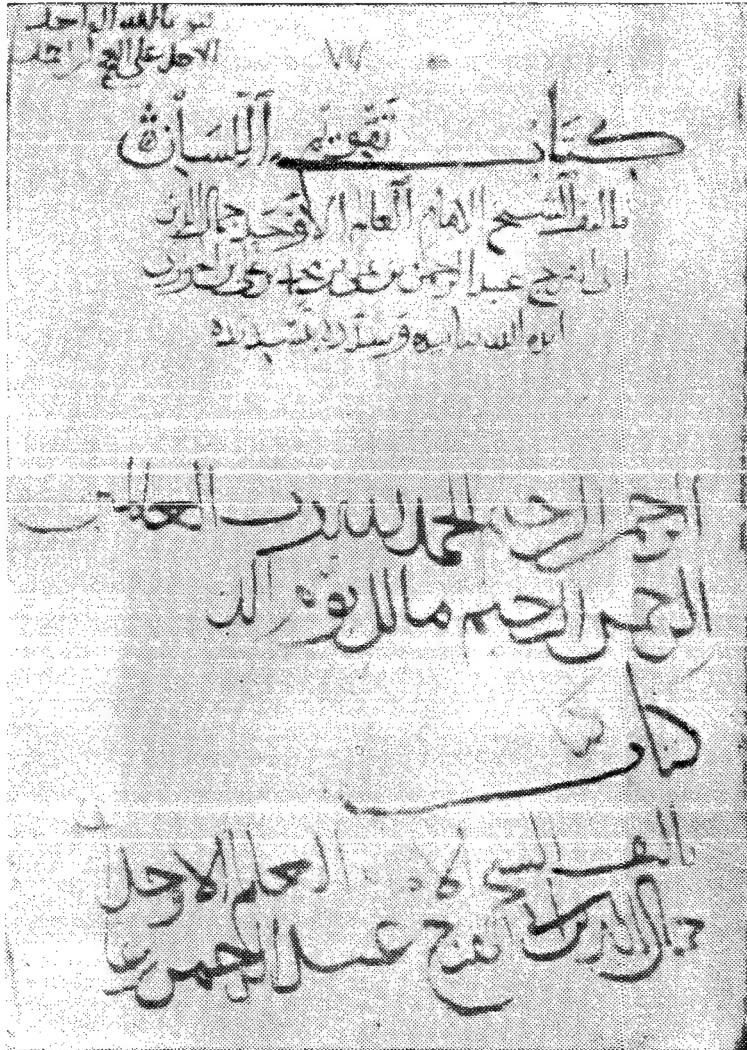 كتاب تقويم اللسان
تاليف الشيخ الامام العالم الاوحد جمال الدين
ابى الفرج عبد الرحمن بن على بن محمد بن على بن الجوزى
ايده الله بتاييده وسدده بتسديده
الرحمن الرحيم الحمد لله رب العلمين
الرحمن الرحيم مالك يوم الد
كتاب
تاليف الشيخ الا العلم الاوحد
جمال الدين ابى الفرج عبد الرحمن بن